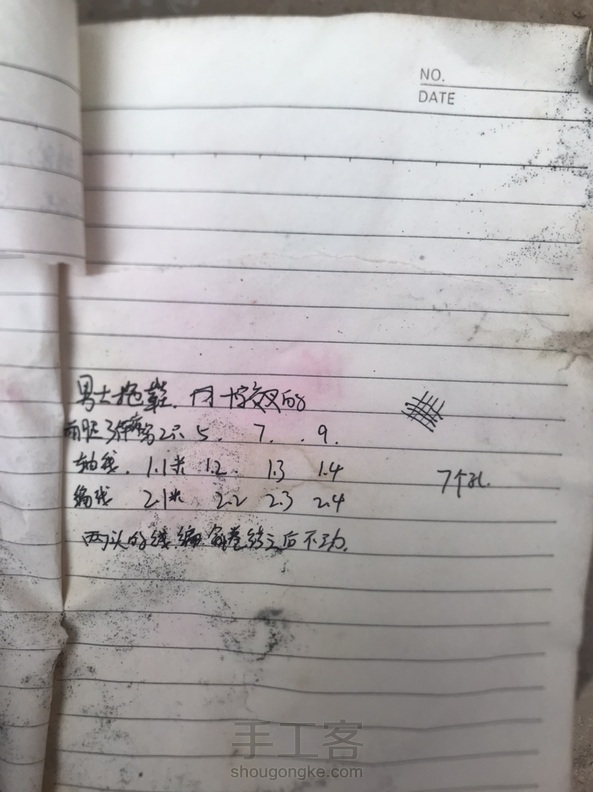 NO.
DATE
男士拖鞋. 十字交叉的
5. 7. 9.
轴线. 1.1米 1.2. 1.3 1.4
7个孔.
编线 2.1米 2.2 2.3 2.4
两头的线编 结之后不动.
手工客
shougongke.com